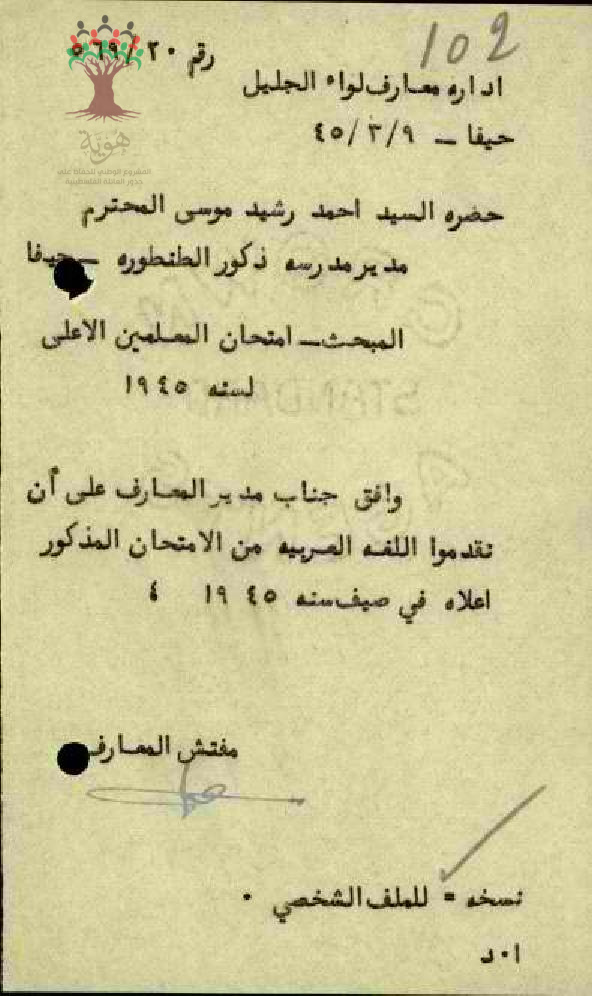 102
رقم ٥٦٩/٢٠
اداره معارف لواء الجليل
حيفا — ٤٥/٣/٩
هوية
المشروع الوطني للحفاظ على
جذور العائلة الفلسطينية
حضره السيد احمد رشيد موسى المحترم
مدير مدرسه ذكور الطنطوره — حيفا
المبحث — امتحان المعلمين الاعلى
لسنه ١٩٤٥
وافق جناب مدير المعارف على أن
تقدموا اللغه العربيه من الامتحان المذكور
اعلاه في صيف سنه ١٩٤٥ ،
مفتش المعارف
نسخه = للملف الشخصي ٠
ا ٠ د